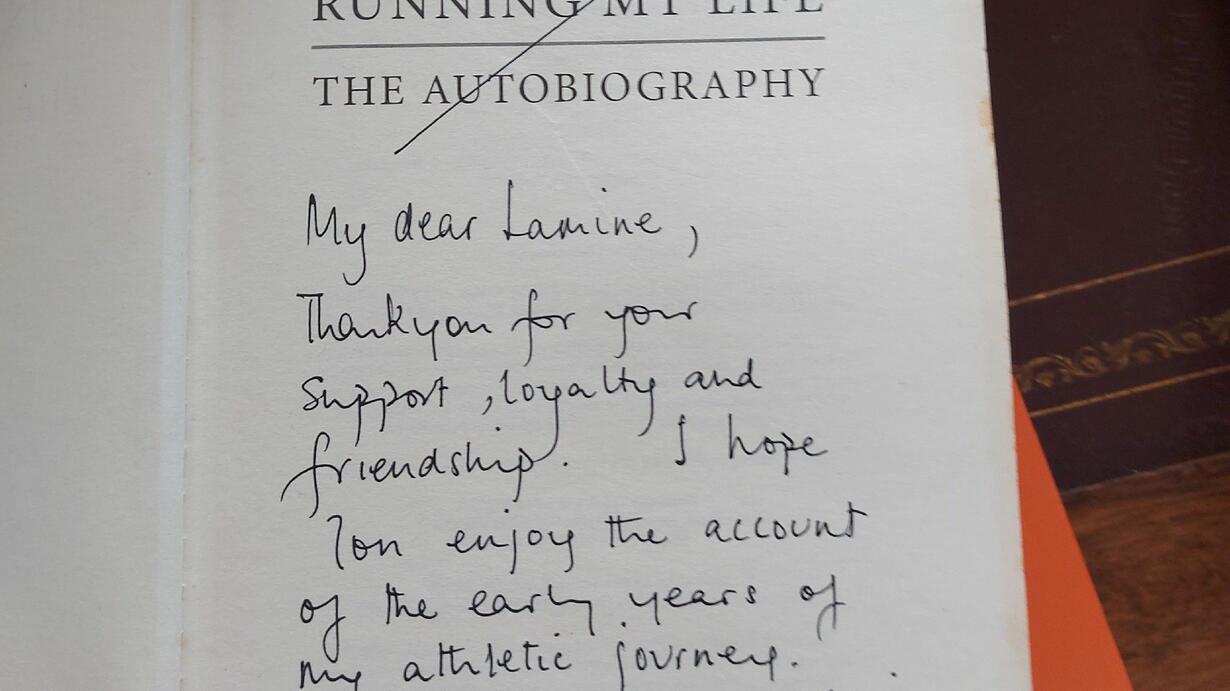 RUNNING MY LIFE
THE AUTOBIOGRAPHY
My dear Lamine,
Thankyou for your
support, loyalty and
friendship. I hope
You enjoy the account
of the early years of
my athletic journey.